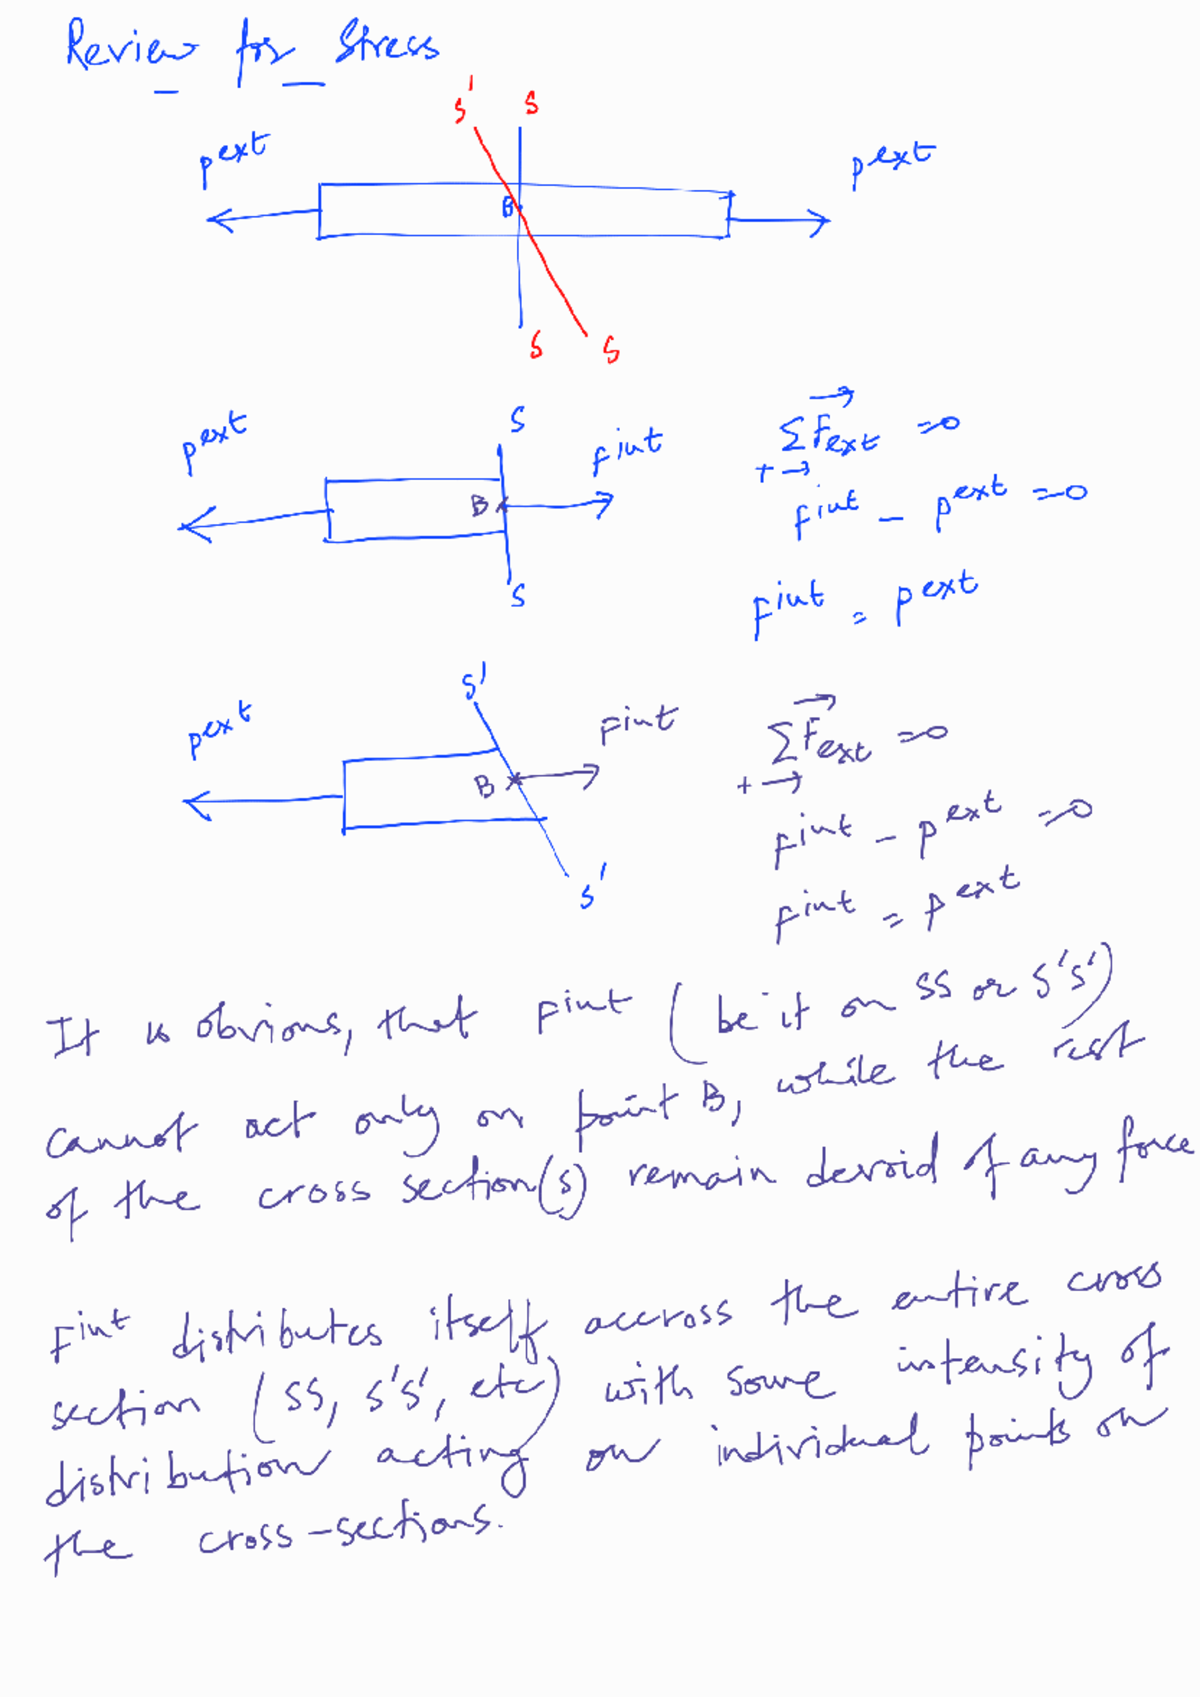 Review for Stress
S' S
pext pext
B
S S
pext S Fint ΣFext =0
+→
B Fint - pext =0
S
Fint = pext
S'
pext Fint ΣFext =0
+→
B Fint - pext =0
S' Fint = pext
It is obvious, that Fint (be it on SS or S'S')
cannot act only on point B, while the rest
of the cross section(s) remain devoid of any force
Fint distributes itself accross the entire cross
section (SS, S'S', etc) with some intensity of
distribution acting on individual points on
the cross-sections.